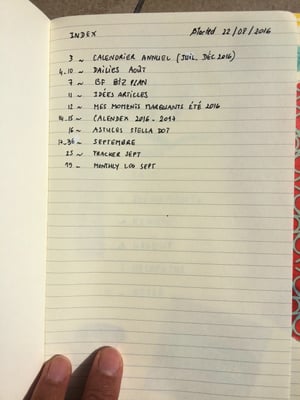 INDEX
Started 22/08/2016
3 ~ CALENDRIER ANNUEL (JUIL. DÉC 2016)
4.10 ~ DAILIES AOÛT
7 ~ BF BIZ PLAN
11 ~ IDÉES ARTICLES
12 ~ MES MOMENTS MARQUANTS ÉTÉ 2016
14.15 ~ CALENDEX 2016-2017
16 ~ ASTUCES STELLA DOT
17.36 ~ SEPTEMBRE
25 ~ TRACKER SEPT
19 ~ MONTHLY LOG SEPT